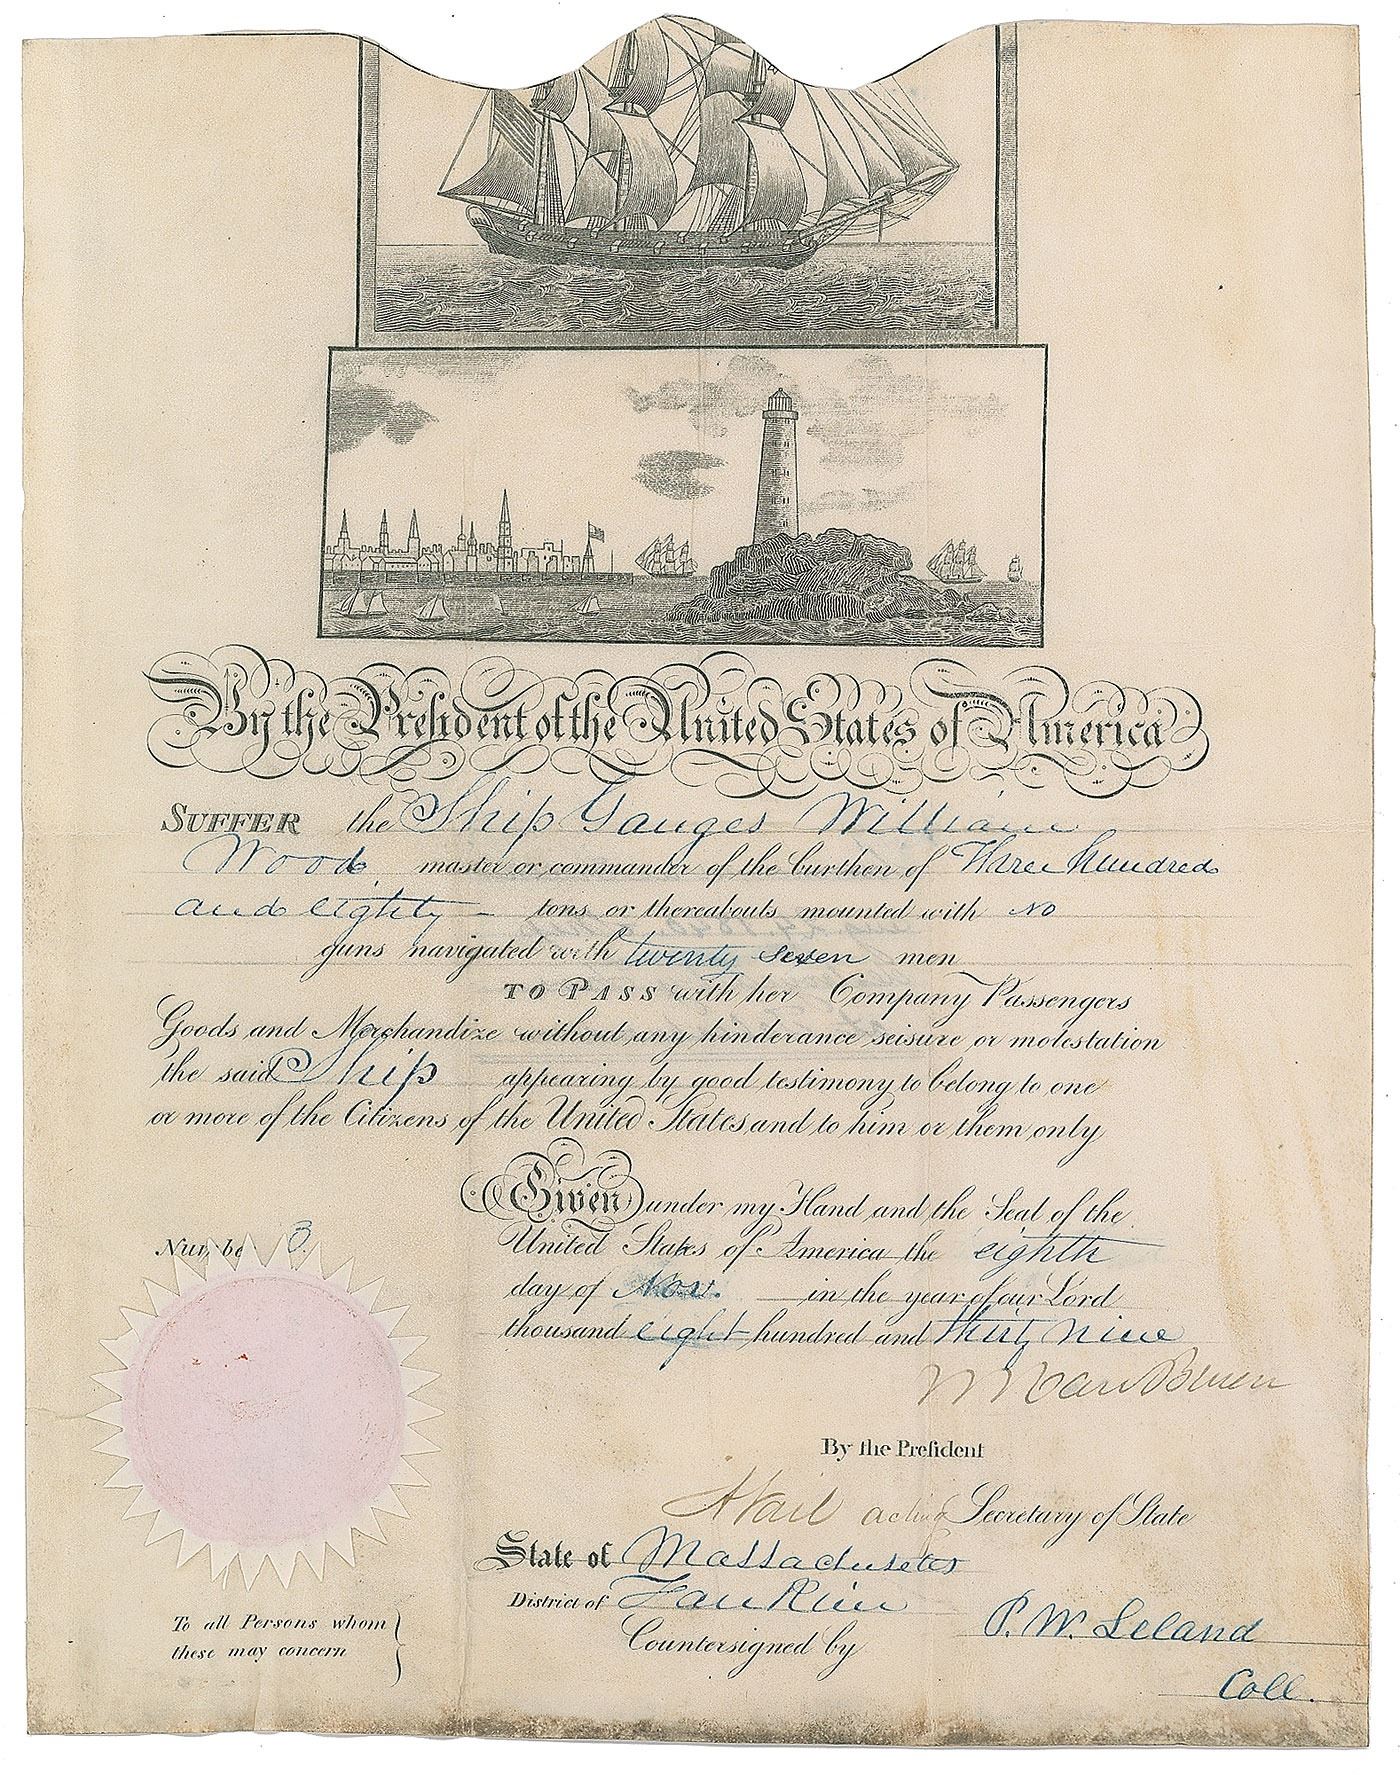 By the President of the United States of America
SUFFER the Ship Ganges William
Wood master or commander of the burthen of Three hundred
and eighty - tons or thereabouts mounted with no
guns navigated with twenty seven men
TO PASS with her Company Passengers
Goods and Merchandize without any hinderance seisure or molestation
the said Ship appearing by good testimony to belong to one
or more of the Citizens of the United States and to him or them only
Given under my Hand and the Seal of the
United States of America the eighth
day of Nov. in the year of our Lord
thousand eight hundred and thirty nine
M Van Buren
Number 3.
By the President
A Vail acting Secretary of State
State of Massachusetts
District of Fall River
Countersigned by P. W. Leland
Coll.
To all Persons whom
these may concern